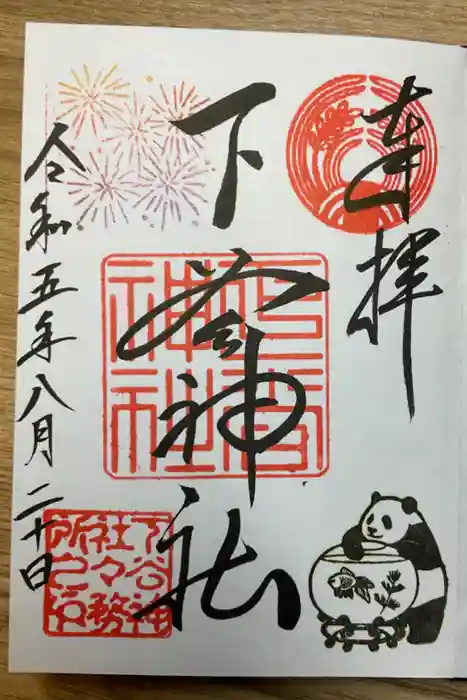 奉拝
下谷神社
令和五年八月二十日
下谷神
社々務
所之印